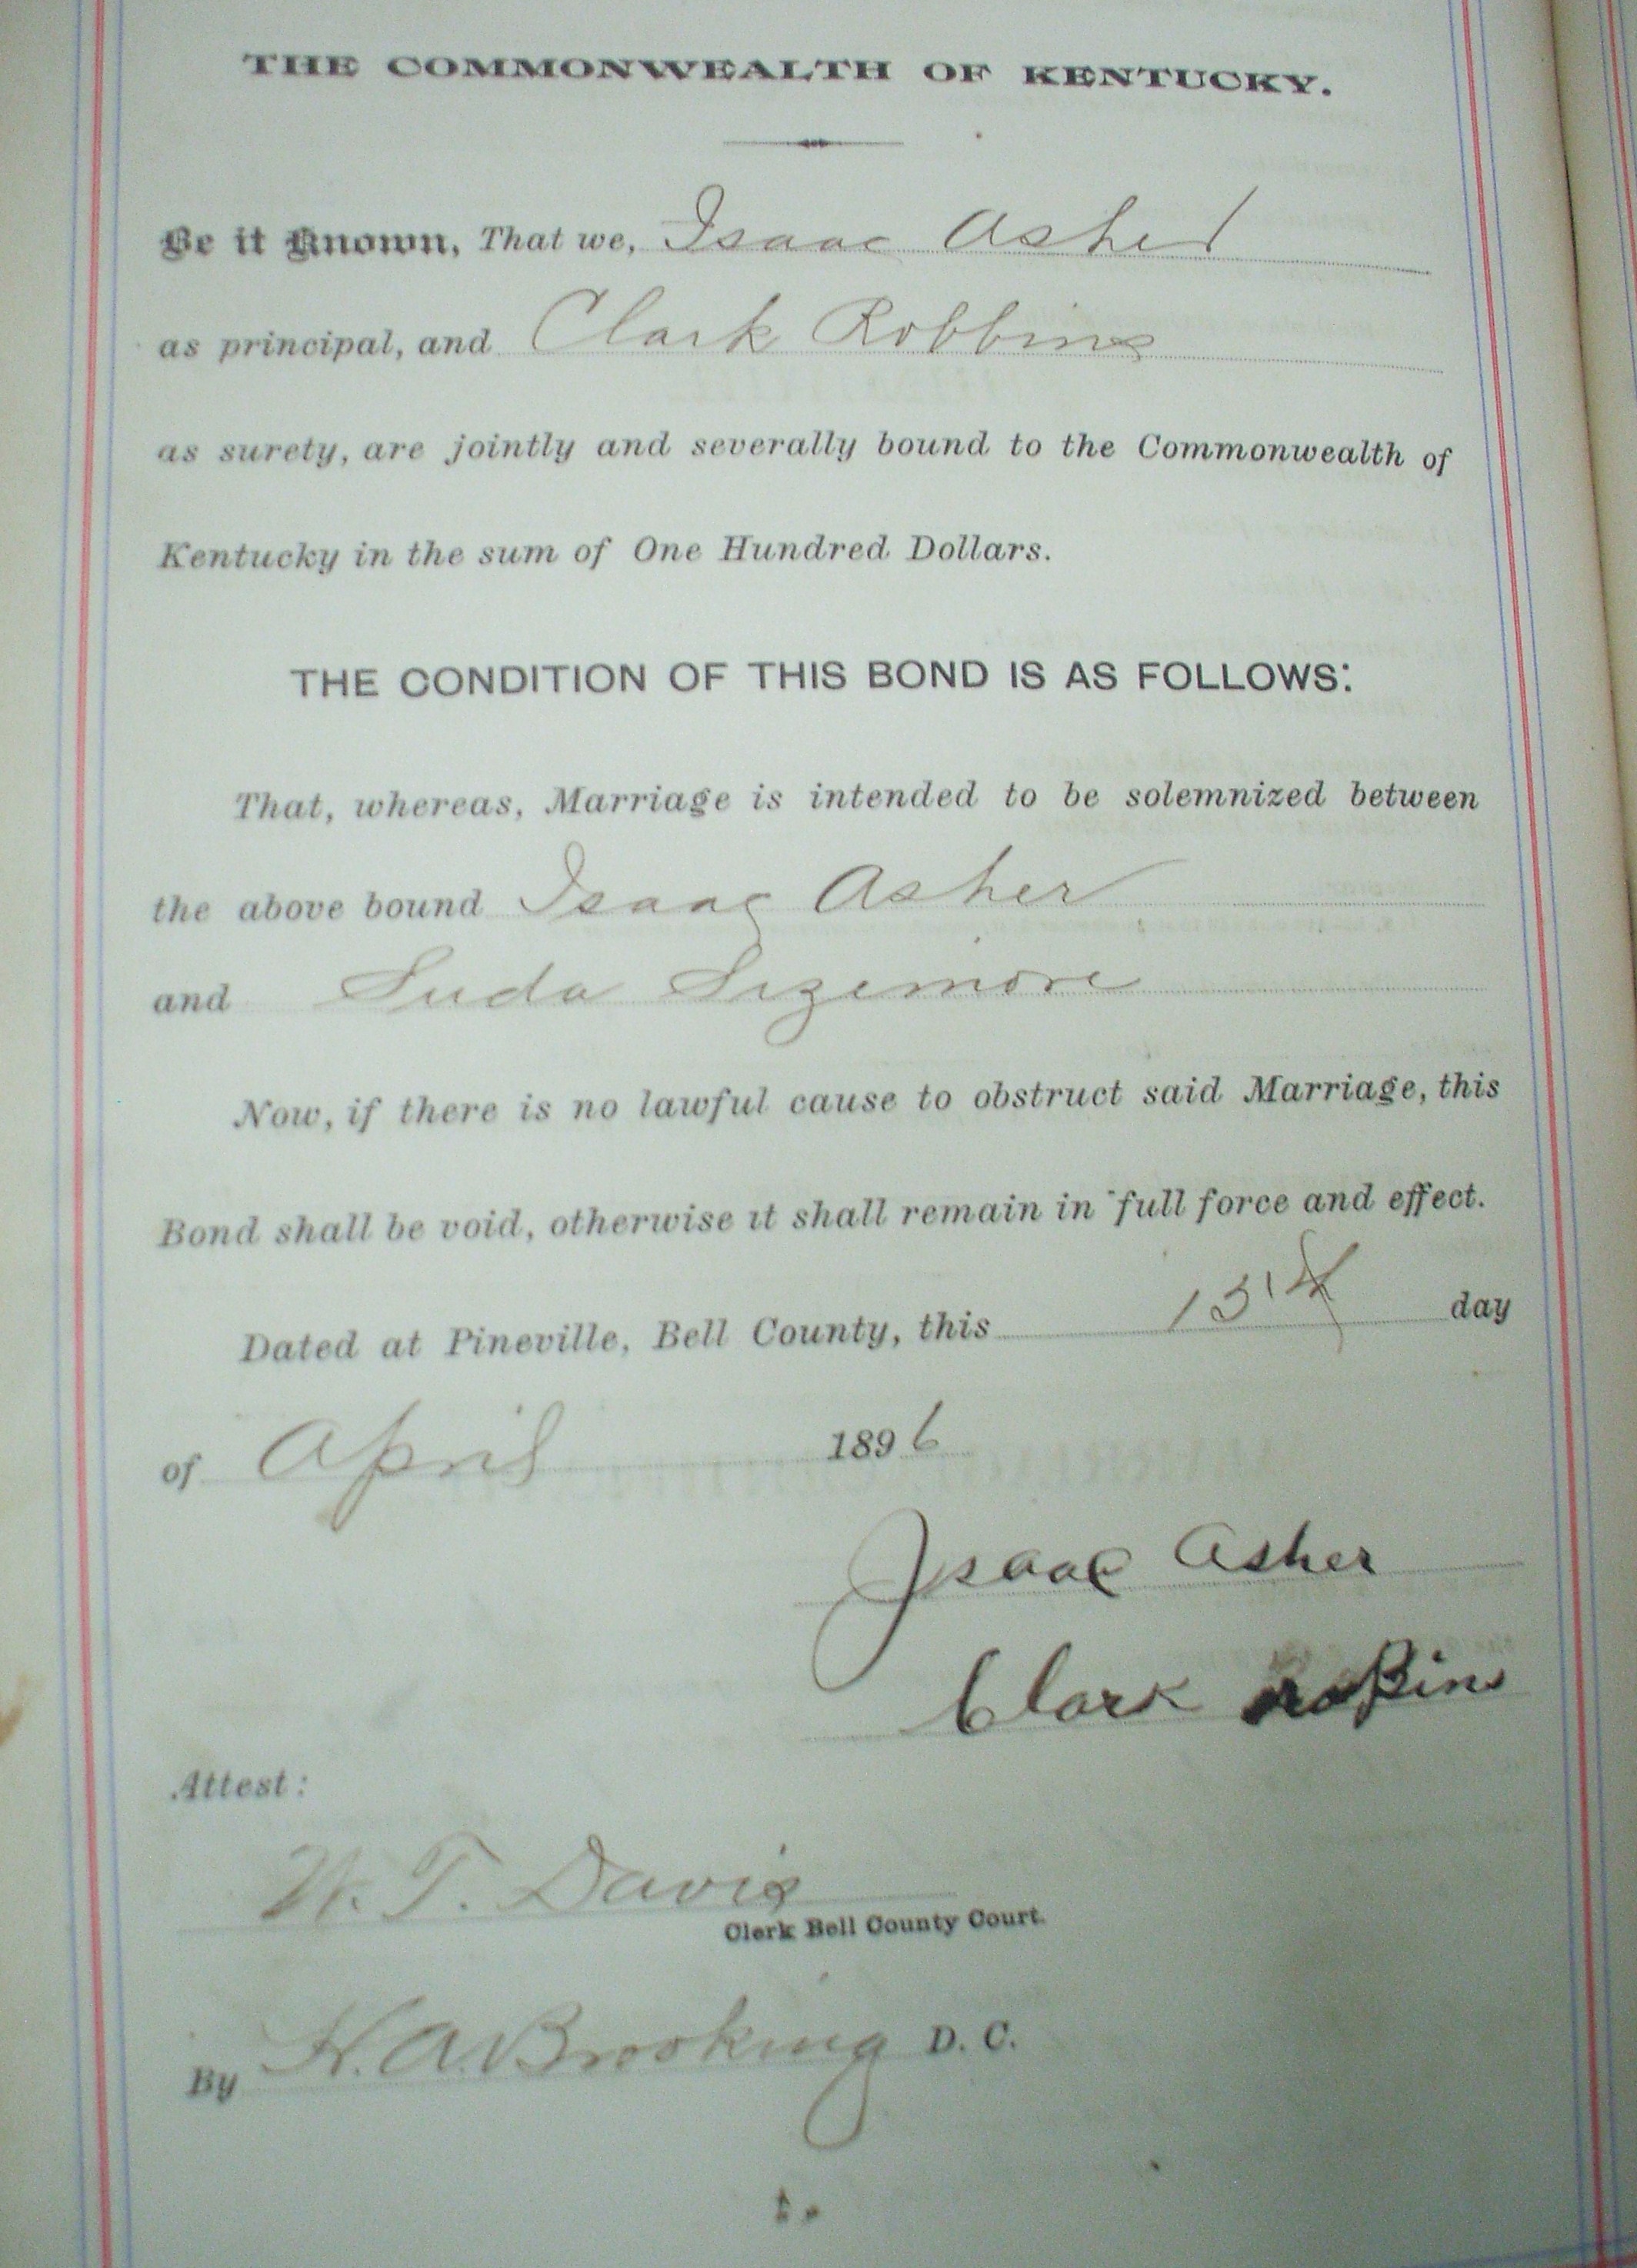 THE COMMONWEALTH OF KENTUCKY.
Be it Known, That we, Isaac Asher
as principal, and Clark Robbins
as surety, are jointly and severally bound to the Commonwealth of
Kentucky in the sum of One Hundred Dollars.
THE CONDITION OF THIS BOND IS AS FOLLOWS:
That, whereas, Marriage is intended to be solemnized between
the above bound Isaac Asher
and Suda Sizemore
Now, if there is no lawful cause to obstruct said Marriage, this
Bond shall be void, otherwise it shall remain in full force and effect.
Dated at Pineville, Bell County, this day
of April 1896
Isaac Asher
Clark roBins
Attest:
W. T. Davis
Clerk Bell County Court.
By H. A. Brooking D. C.